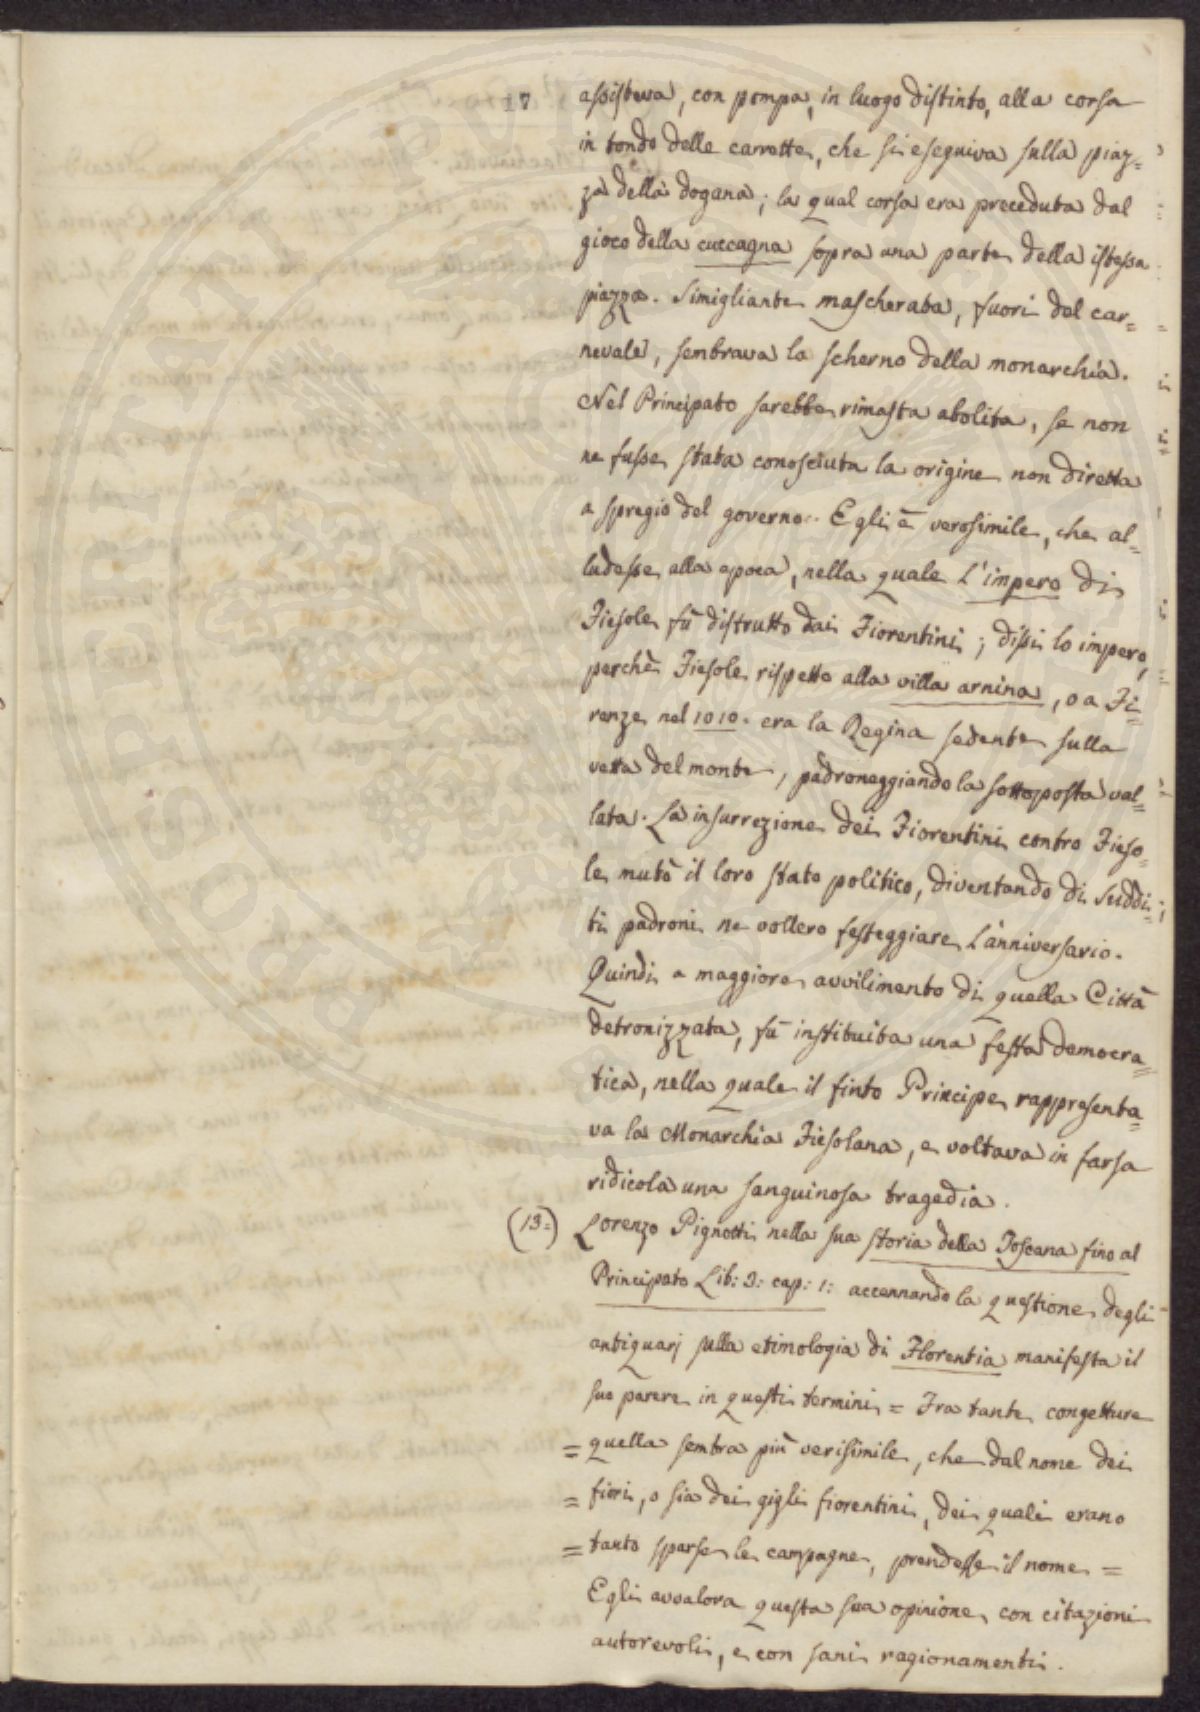 17
assisteva, con pompa, in luogo distinto, alla corsa
in tondo delle carrette, che si eseguiva sulla piaz=
za della dogana; la qual corsa era preceduta dal
gioco della cuccagna sopra una parte della istessa
piazza. Simigliante mascherata, fuori del car=
nevale, sembrava lo scherno della monarchia.
Nel Principato sarebbe rimasta abolita, se non
ne fusse stata conosciuta la origine non diretta
a spregio del governo. Egli è verosimile, che al=
ludesse alla epoca, nella quale l'impero di
Fiesole fù distrutto dai Fiorentini; dissi lo impero,
perchè Fiesole rispetto alla villa arnina, o a Fi=
renze nel 1010. era la Regina sedente sulla
vetta del monte, padroneggiando la sottoposta val=
lata. La insurrezione dei Fiorentini contro Fieso=
le mutò il loro stato politico, diventando di Suddi=
ti padroni ne vollero festeggiare l'anniversario.
Quindi a maggiore avvilimento di quella Città
detronizzata, fù instituita una festa democra=
tica, nella quale il finto Principe rappresenta=
va la Monarchia Fiesolana, e voltava in farsa
ridicola una sanguinosa tragedia.
(13.) Lorenzo Pignotti nella sua storia della Toscana fino al
Principato Lib: 3: cap: 1: accennando la questione degli
antiquarj sulla etimologia di Florentia manifesta il
suo parere in questi termini = Fra tante congetture
= quella sembra più verisimile, che dal nome dei
= fiori, o sia dei gigli fiorentini, dei quali erano
= tanto sparse le campagne, prendesse il nome =
Egli avvalora questa sua opinione con citazioni
autorevoli, e con sani ragionamenti.